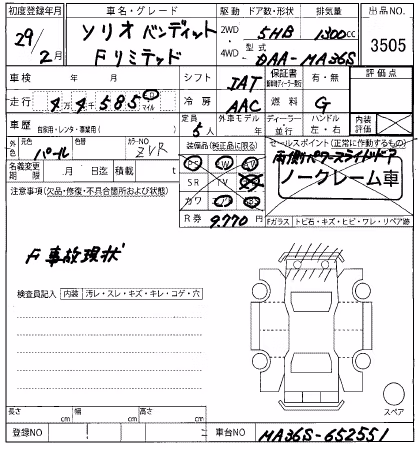 初度登録年月 車名・グレード 駆動 ドア数・形状 排気量 出品NO.
29/2月 ソリオ バンディット Fリミテッド 2WD 4WD 5HB 1300cc 3505
型式 DAA-MA36S
車検 年 月 シフト IAT 保証書 有・無 評価点
走行 4万4千585 km マイル 冷房 AAC 燃料 G
車歴 自家用・レンタ・事業用( ) 定員 5人 外車モデル 年 ディーラー 並行 ハンドル 左・右 内装評価
外色 元色 パール 色替 カラーNO ZVR 装備品(純正品に限る) セールスポイント(正常に作動するもの)
PS PW 両側パワースライドドア
名義変更期限 月 日迄 積載 t SR TV ノークレーム車
注意事項(欠品・修復・不具合箇所および状態) カワ
R券 9,770円 Fガラス トビ石・キズ・ヒビ・ワレ・リペア跡
F事故現状
検査員記入 内装 汚レ・スレ・キズ・キレ・コゲ・穴
スペア
長さ cm 幅 cm 高さ cm
登録NO 車台NO MA36S-652551